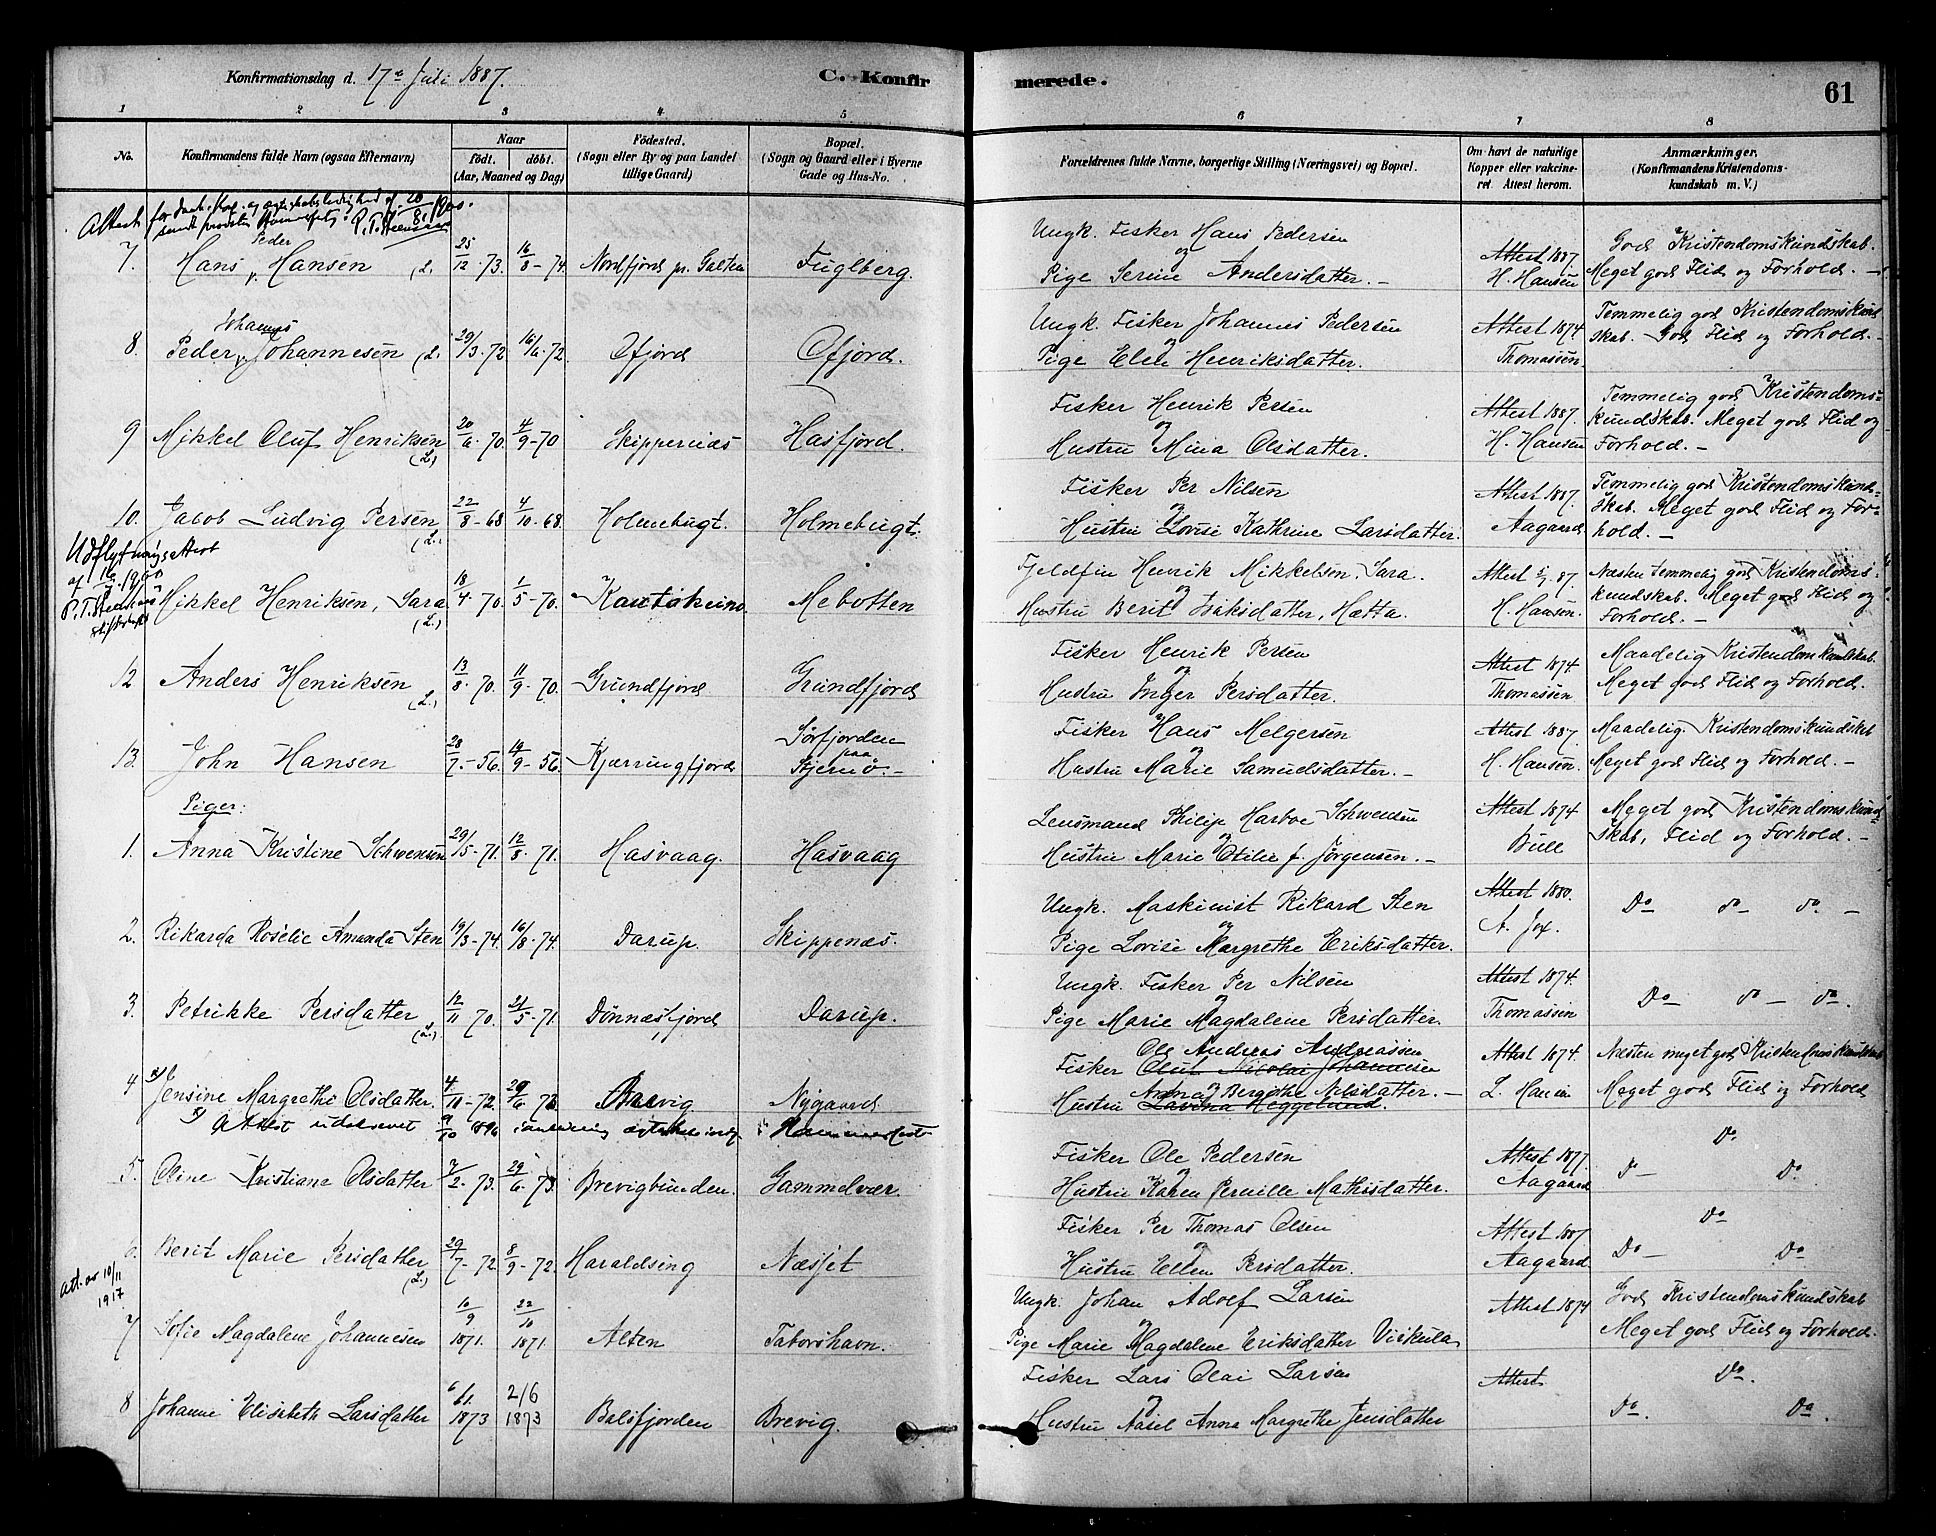 Konfirmationsdag d. 17de Juli 1887.
C. Konfirmerede.
61
1 2 3 4 5 6 7 8
No.
Konfirmandens fulde Navn (ogsaa Efternavn)
Naar
födt. döbt.
(Aar, Maaned og Dag)
Födested.
(Sogn eller By og paa Landet
tillige Gaard)
Bopæl.
(Sogn og Gaard eller i Byerne
Gade og Hus-No.
Forældrenes fulde Navne, borgerlige Stilling (Næringsvei) og Bopæl.
Om havt de naturlige
Kopper eller vakcine-
ret. Attest herom.
Anmærkninger.
(Konfirmandens Kristendoms-
kundskab m. V.)
7. Hans Peder Hansen (L. 25/12-73. 16/8-74. Nordfjord pr. Galten Fuglberg.
Ungk. Fisker Hans Pedersen
og
Pige Serine Andersdatter.-
Attest 1887
H. Hansen
God Kristendomskundskab.
Meget god Flid og Forhold.-
8. Peder Johannes Johannesen (L. 29/3-72 16/6-72. Ofjord Ofjord.
Ungk. Fisker Johannes Pedersen
og
Pige Elen Henriksdatter.
Attest 1874
Thomassen.
Temmelig god Kristendomskund
skab. God Flid og Forhold.-
9 Mikkel Oluf Henriksen (L.) 20/6-70. 4/9-70 Skippernæs Hasfjord.
Fisker Henrik Persen
og
Hustru Mina Olsdatter.
Attest 1887.
H. Hansen
Temmelig god Kristendoms-
kundskab. Meget god Flid og
Forhold.-
10. Jacob Ludvig Persen (L. 22/8-68 4/10-68. Holmebugt. Holmebugt.
Fisker Per Nilsen
og
Hustru Lovise Kathrine Larsdatter.
Attest 1887.
Aagaard
Temmelig god Kristendomskund-
skab. Meget god Flid og For-
hold.-
Udflytningsattest
Mikkel Henriksen, Sara (L.) 18/4-70. 1/5-70. Kautokeino Mebotten
Fjeldfin Henrik Mikkelsen, Sara.
og
Hustru Berit Isaksdatter, Hætta.
Attest 5/7 87
H. Hansen.
Næsten temmelig god Kristendoms-
kundskab. Meget god Flid og
Forhold.-
12 Anders Henriksen (L.) 13/8-70. 11/9-70. Grundfjord Grundfjord
Fisker Henrik Persen
og
Hustru Inger Persdatter.
Attest 1874.
Thomassen
Maadelig Kristendomskundskab.
Meget god Flid og Forhold.
13. John Hansen 28/7-56. 14/9-56. Kjærringfjord Sørfjorden
paa
Stjernø.-
Fisker Hans Melgersen
og
Hustru Marie Samuelsdatter.-
Attest 1887.
H. Hansen.
Maadelig Kristendomskundskab
Meget god Flid og Forhold.-
Piger:
1. Anna Kristine Schwensen 29/5-71. 12/8-71. Hasvaag. Hasvaag
Lensmand Philip Harboe Schwensen
og
Hustru Marie Otilie f. Jørgensen.-
Attest 1874
Bull
Meget god Kristendomskund-
skab, Flid og Forhold.-
2. Rikarda Roselie Amanda Sten 19/3-74. 16/8-74. Darup. Skippenæs.
Ungk. Maskinist Rikard Sten
og
Pige Lovise Margrethe Eriksdatter.
Attest 1880.
A. Jox.
Do do do.-
3. Petrikke Persdatter (L.) 12/11 70. 21/5-71. Dønnesfjord Darup.
Ungk. Fisker Per Nilsen
og
Pige Marie Magdalene Persdatter.
Attest 1874.
Thomassen
Do do - do.
4 Jensine Margrethe Olsdatter. 4/11-72. 29/6-73. Brevig Nygaard
Ole Andreas Andreassen
Fisker Oluf Nicolai Johannesen
Anna Bergithe Nilsdatter.-
Hustru Lavina Heggeland.
Attest 1874.
L. Hansen
Næsten meget god Kristendomskundskab
Meget god Flid og Forhold
Attest udskrevet 9/10 1896
5. Oline Kristiane Olsdatter 7/2-73. 29/6-73. Brevigbunden. Gammelvær.
Fisker Ole Pedersen
og
Hustru Karen Pernille Mathisdatter.
Attest 1877.
Aagaard
Do
Do- Do.
6. Berit Marie Persdatter (L.) 29/7-72. 8/9-72. Haraldseng Næsset
Fisker Per Thomas Olsen
og
Hustru Ellen Persdatter.
Attest 1887
Aagaard
Do
Do- Do
att. av 10/11
1917
7 Sofie Magdalene Johannesen 10/9 1871. 22/10 1871. Alten Taborshavn.
Ungk. Johan Adolf Larsen
og
Pige Marie Magdalene Eriksdatter Viskula
Attest 1874
God Kristendomskundskab
Meget god Flid og Forhold.
8 Johanne Elisebeth Larsdatter 6/1. 1873 2/6 1873 Balsfjorden Brevig.
Fisker Lars Olai Larsen
og
Hustru Aasel Anna Margrethe Jensdatter
Attest
Do.
Do. Do.